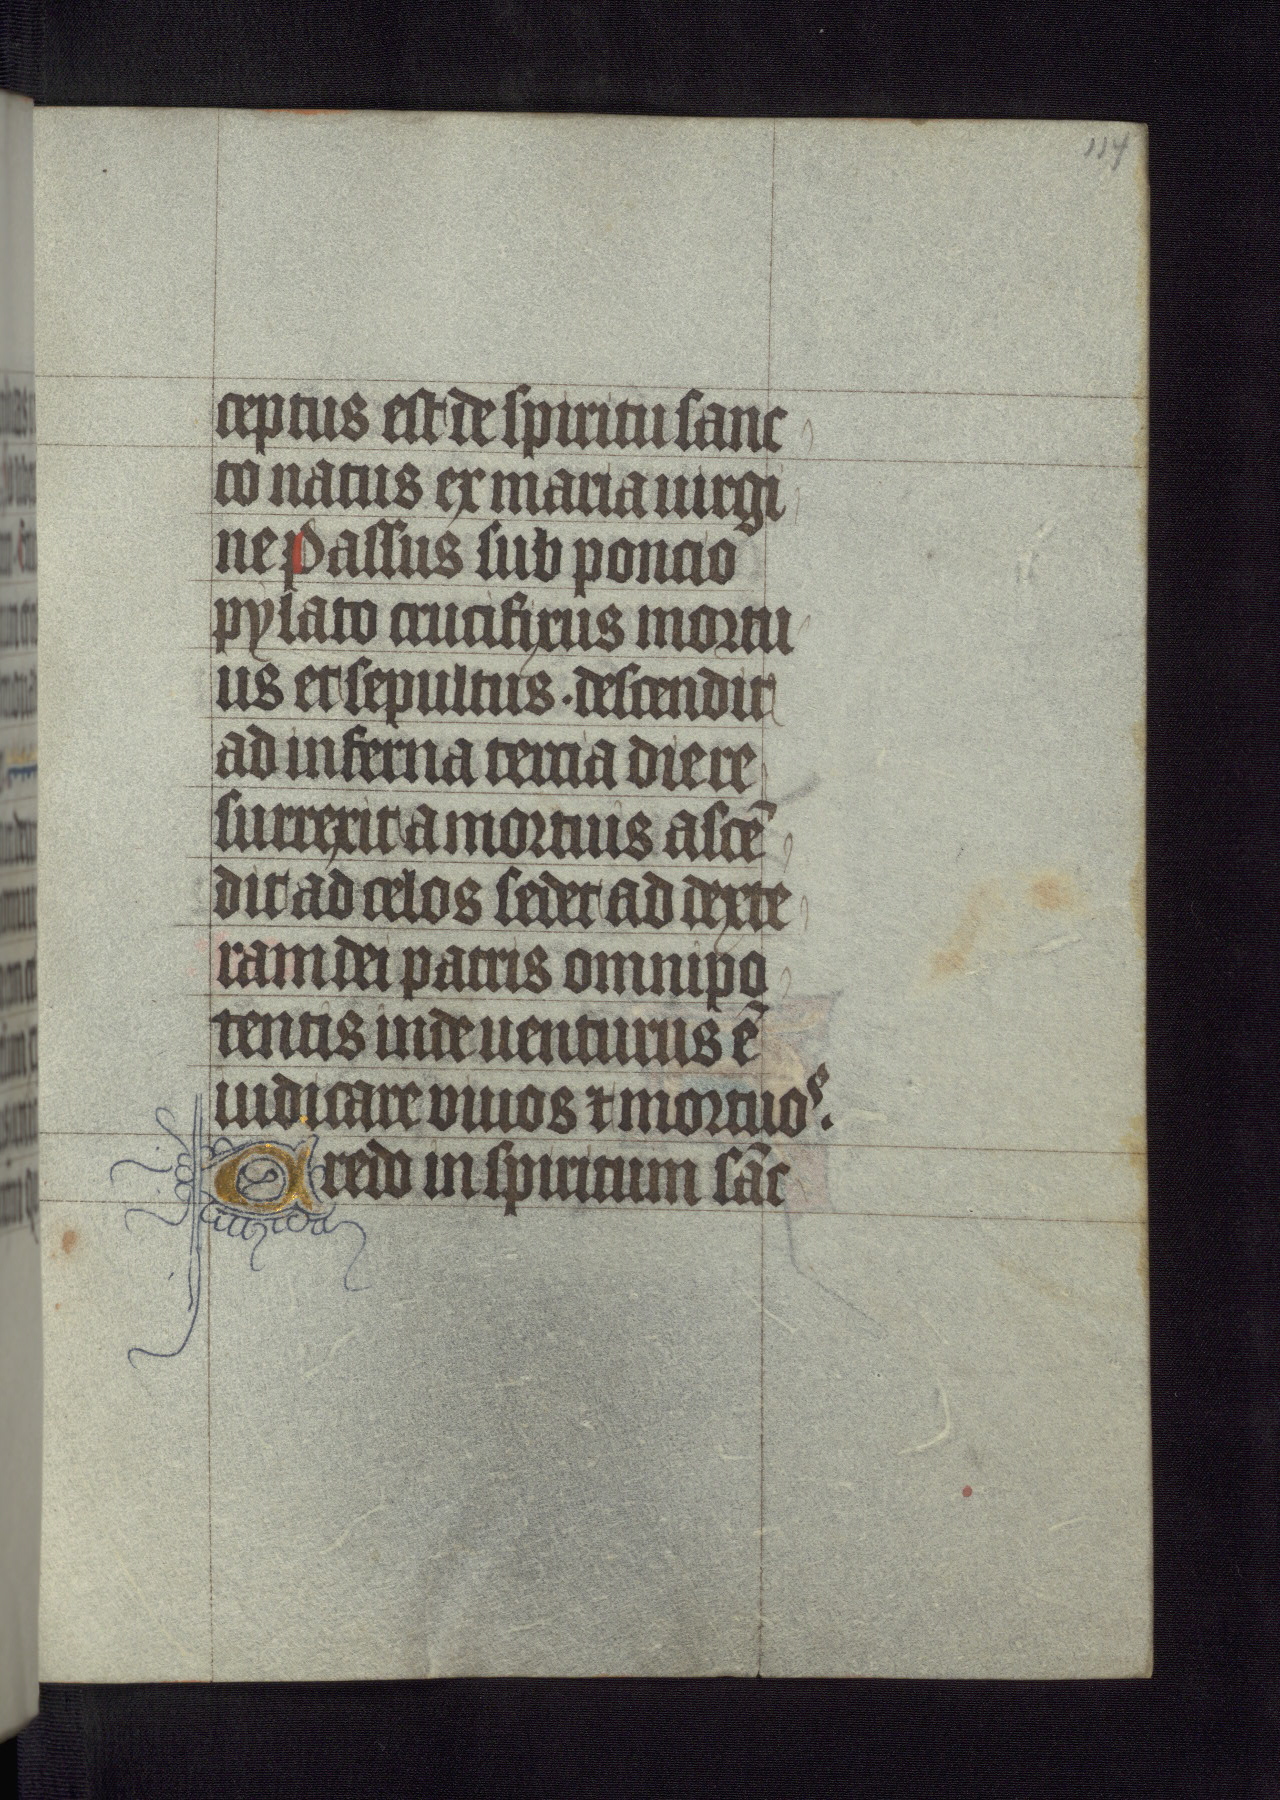 114
ceptus est de spiritu sanc
to natus ex maria uirgi
ne Passus sub poncio
pylato crucifixus mortu
us et sepultus · descendit
ad inferna tercia die re
surrexit a mortuis ascē
dit ad celos sedet ad dexte
ram dei patris omnipo
tentis inde uenturus ē
iudicare viuos ⁊ mortuoˢ.
Credo in spiritum sāc